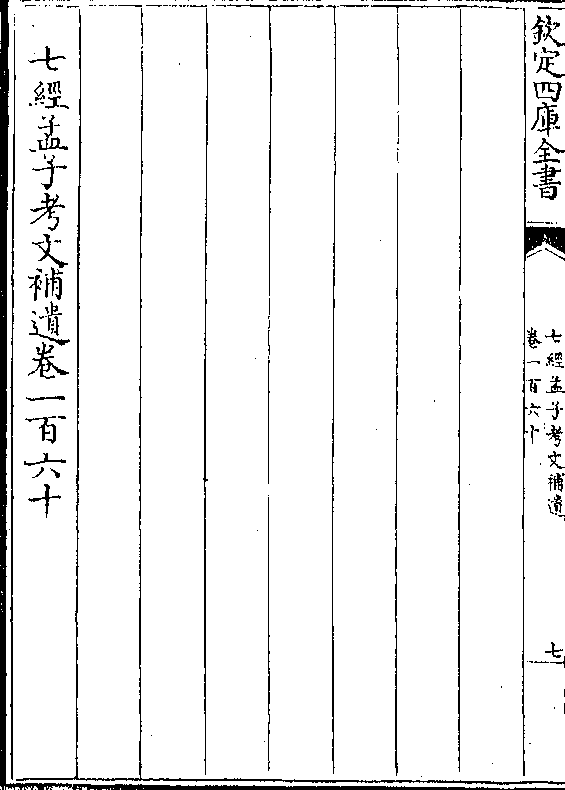 欽定四庫全書
七經孟子考文補遺
卷一百六十
七
七經孟子考文補遺卷一百六十